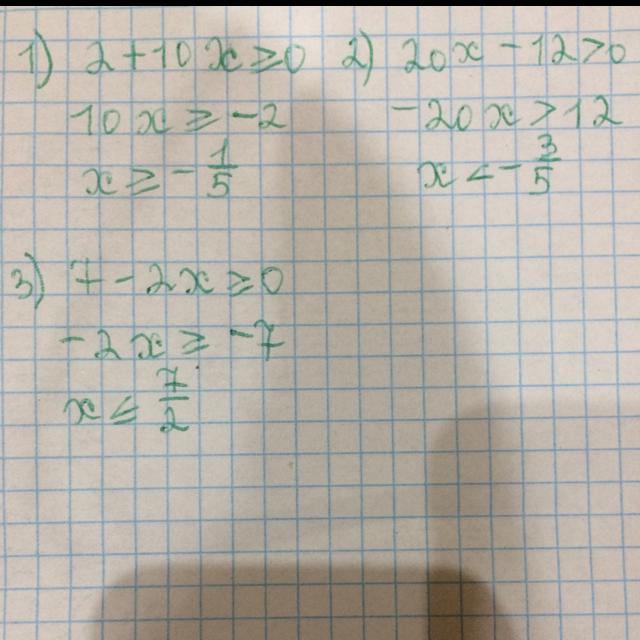 1) 2+10x≥0
10x ≥ -2
x ≥ -1/5
2) 20x-12>0
-20x>12
x < -3/5
3) 7-2x≥0
-2x ≥ -7
x ≤ 7/2